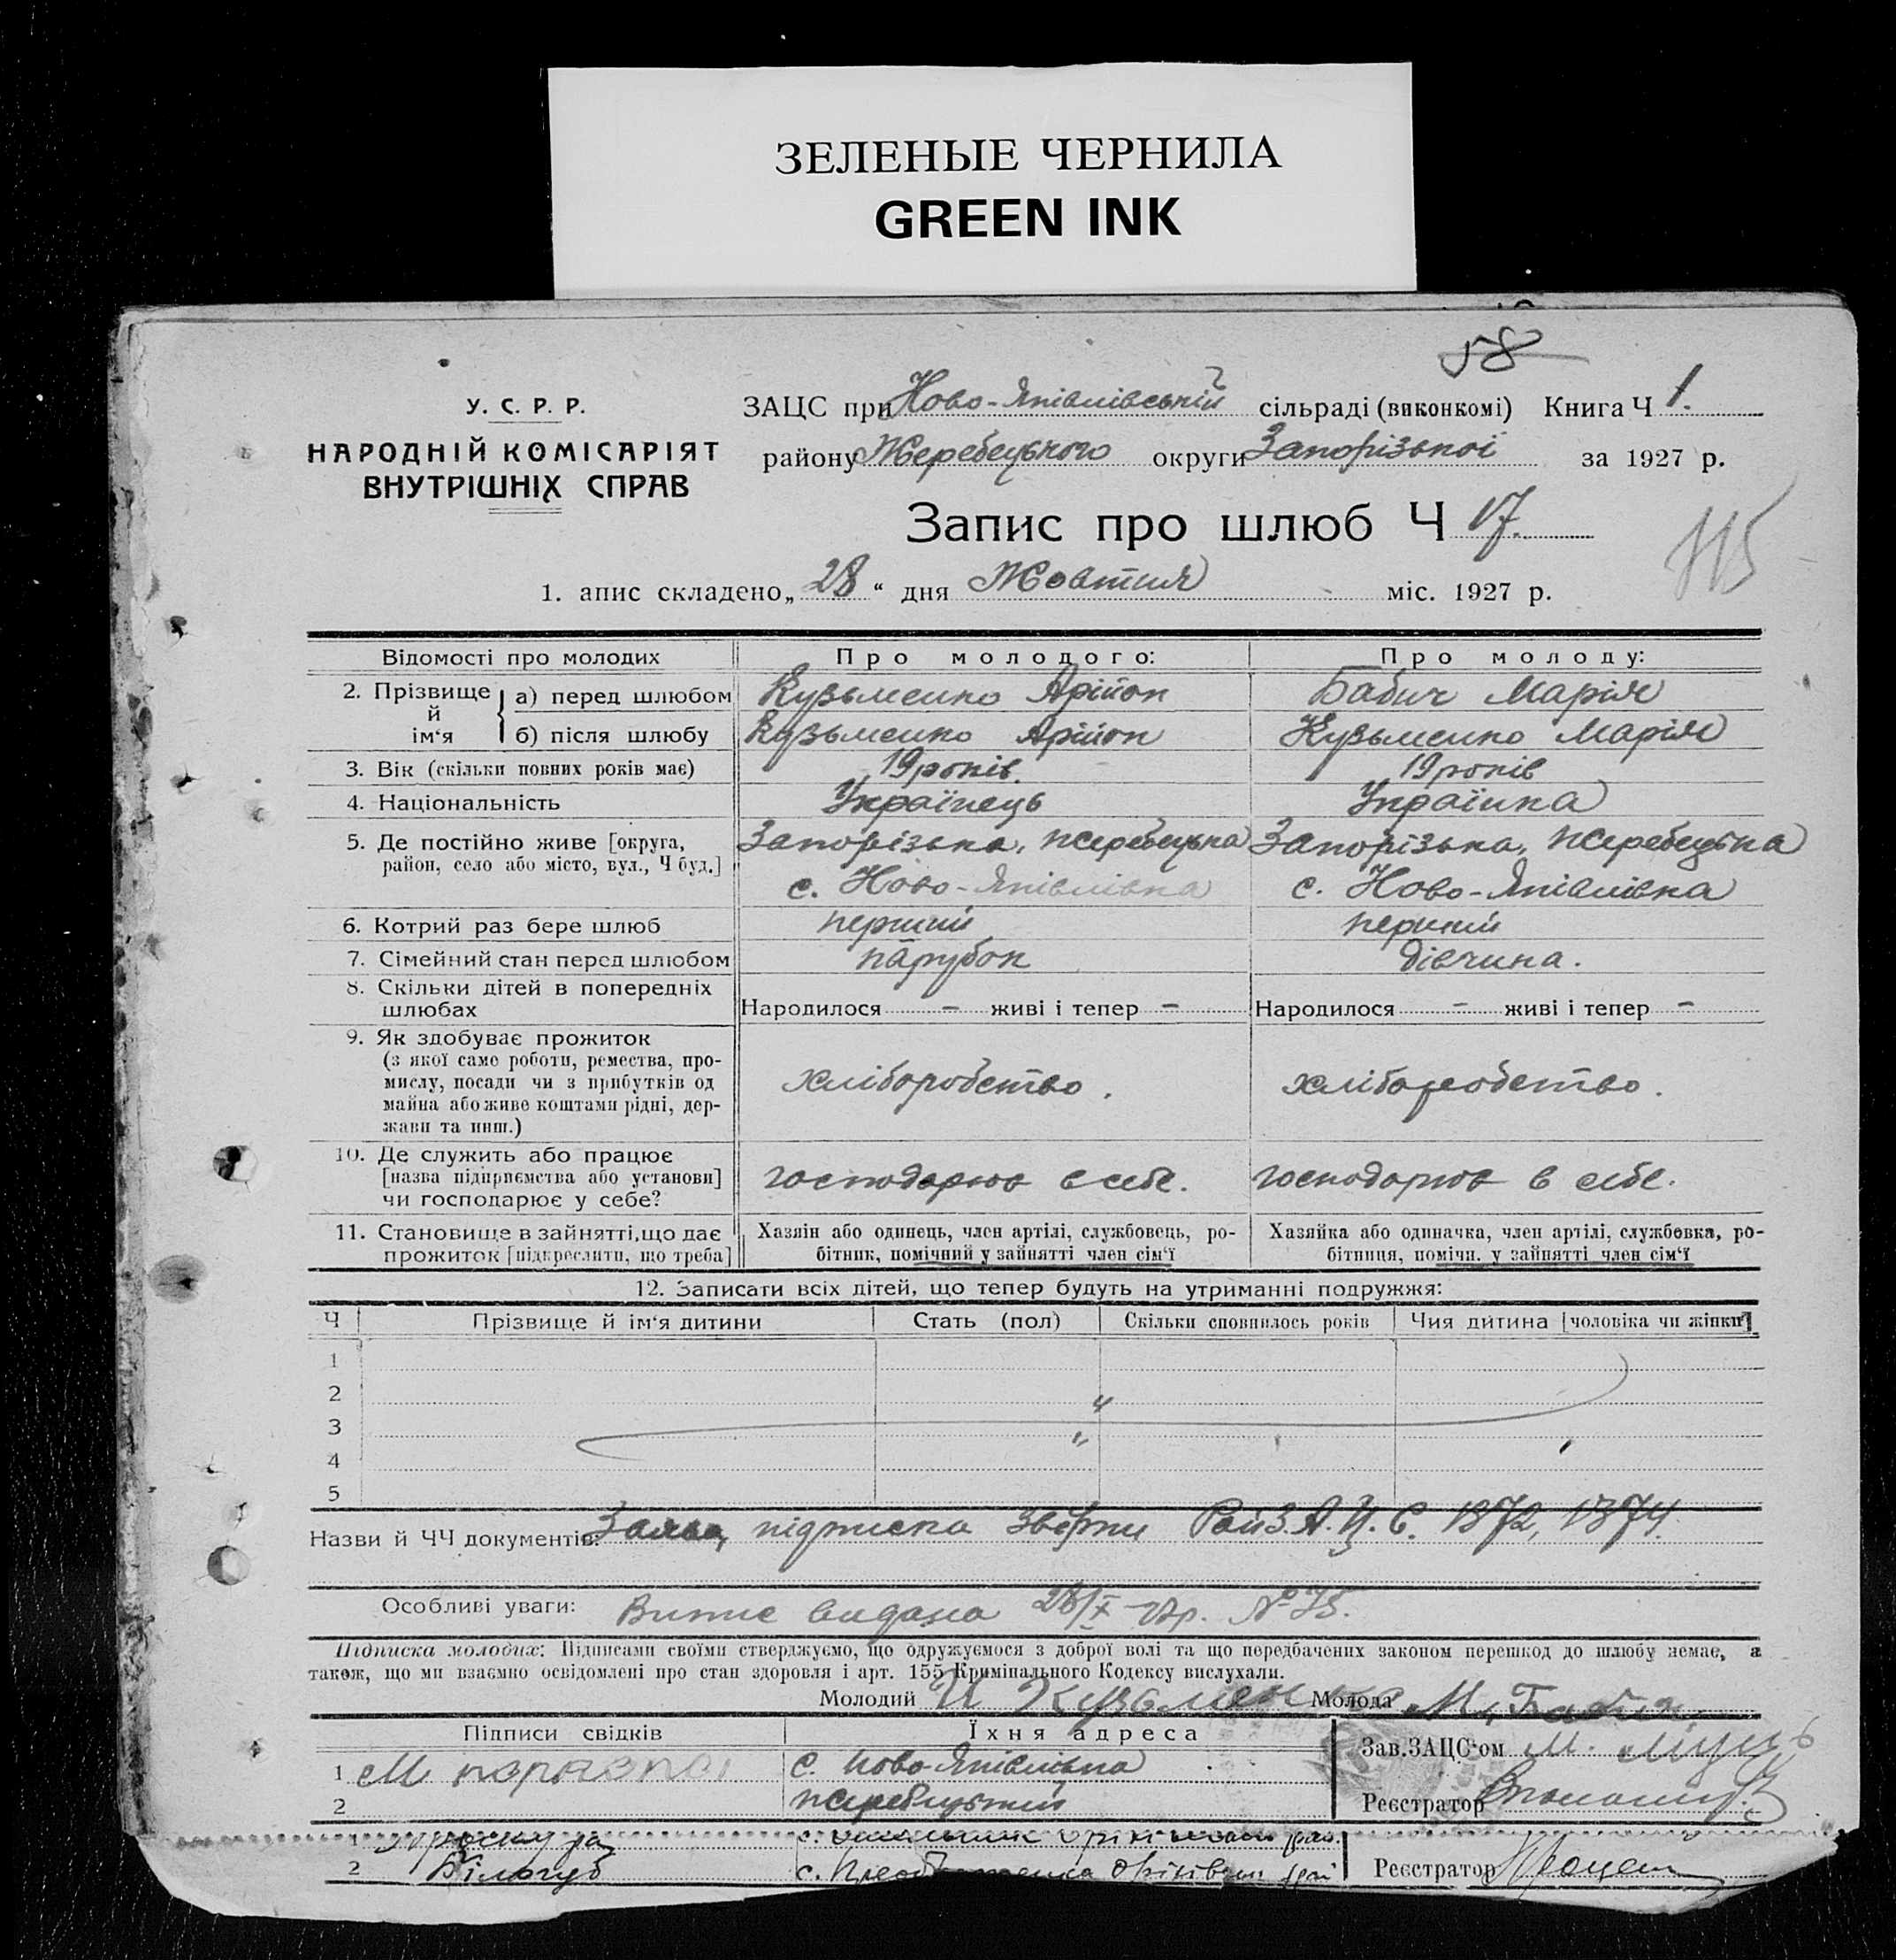 ЗЕЛЕНЫЕ ЧЕРНИЛА
GREEN INK
58
У. С. Р. Р.
НАРОДНІЙ КОМІСАРІЯТ
ВНУТРІШНІХ СПРАВ
ЗАЦС при Ново-Яківлівській сільраді (виконкомі) Книга Ч 1.
району Жеребецького округи Запорізької за 1927 р.
Запис про шлюб Ч 17.
115
1. апис складено „28“ дня Жовтня міс. 1927 р.
Відомості про молодих
Про молодого:
Про молоду:
2. Прізвище й ім‘я
а) перед шлюбом
Кузьменко Арійон
Бабич Марія
б) після шлюбу
Кузьменко Арійон
Кузьменко Марія
3. Вік (скільки повних років має)
19 років.
19 років
4. Національність
Українець
Українка
5. Де постійно живе [округа,
район, село або місто, вул., Ч буд.]
Запорізька, жеребецька
с. Ново-Яківлівка
Запорізька, жеребецька
с. Ново-Яківлівка
6. Котрий раз бере шлюб
перший
перший
7. Сімейний стан перед шлюбом
парубок
дівчина.
8. Скільки дітей в попередніх
шлюбах
Народилося - живі і тепер -
Народилося - живі і тепер -
9. Як здобуває прожиток
(з якої саме роботи, ремества, про-
мислу, посади чи з прибутків од
майна або живе коштами рідні, дер-
жави та инш.)
хліборобство.
хліборобство.
10. Де служить або працює
[назва підприємства або установи]
чи господарює у себе?
господарює в себе.
господарює в себе.
11. Становище в зайнятті, що дає
прожиток [підкреслити, що треба]
Хазяін або одинець, член артілі, службовець, ро-
бітник, помічний у зайнятті член сім‘ї
Хазяйка або одиначка, член артілі, службовка, ро-
бітниця, помічн. у зайнятті член сім‘ї
12. Записати всіх дітей, що тепер будуть на утриманні подружжя:
Ч
Прізвище й ім‘я дитини
Стать (пол)
Скільки сповнилось років
Чия дитина [чоловіка чи жінки]
1
2
3
4
5
Назви й ЧЧ документів: Заява, підписка Рай З.А.Ц.С. 1872, 1874.
Особливі уваги: Випис видана 28/X-27р. № 75.
Підписка молодих: Підписами своїми стверджуємо, що одружуємося з доброї волі та що передбачених законом перешкод до шлюбу немає, а
також, що ми взаємно освідомлені про стан здоровля і арт. 155 Кримінального Кодексу вислухали.
Молодий И Кузьменко Молода М. Бабич
Підписи свідків
Їхня адреса
1 М
с. Ново-Яківлівка
2
жеребецький
Зав. ЗАЦС‘ом М.
Реєстратор
1
2 Білогуб
с.
Реєстратор